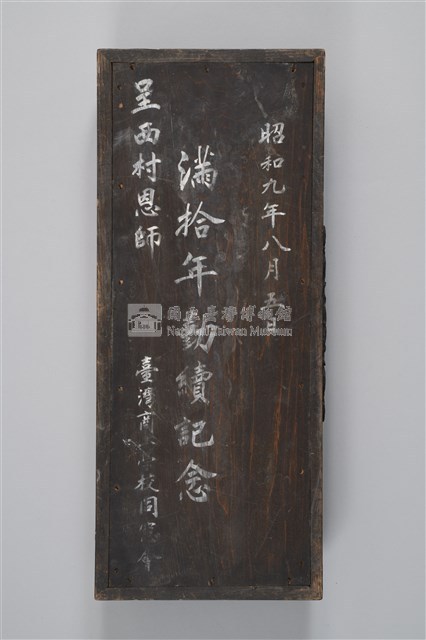 昭和九年八月吉日
満拾年勤續記念
呈西村恩師
臺灣商工学校同窓会
國立臺灣博物館
National Taiwan Museum